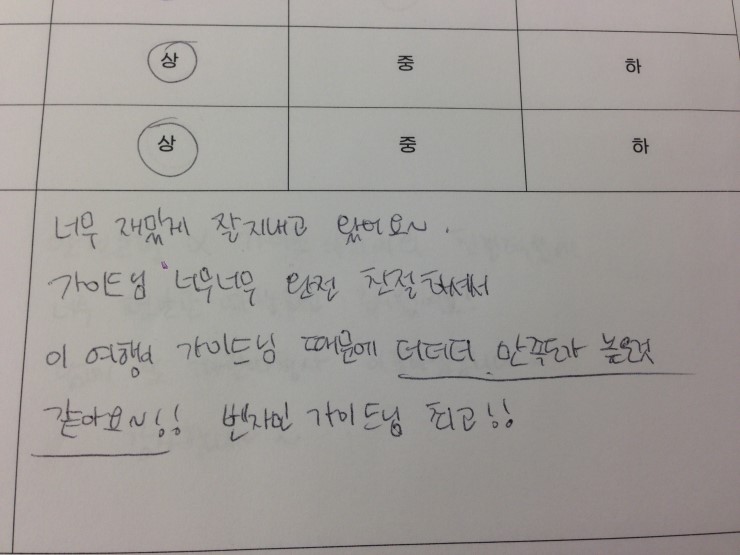 상 중 하
상 중 하
너무 재밌게 잘지내고 왔어요~.
가이드님 너무너무 완전 친절하셔서
이 여행 가이드님 때문에 더더더 만족도가 높은것
같아요~!! 벤자민 가이드님 최고!!